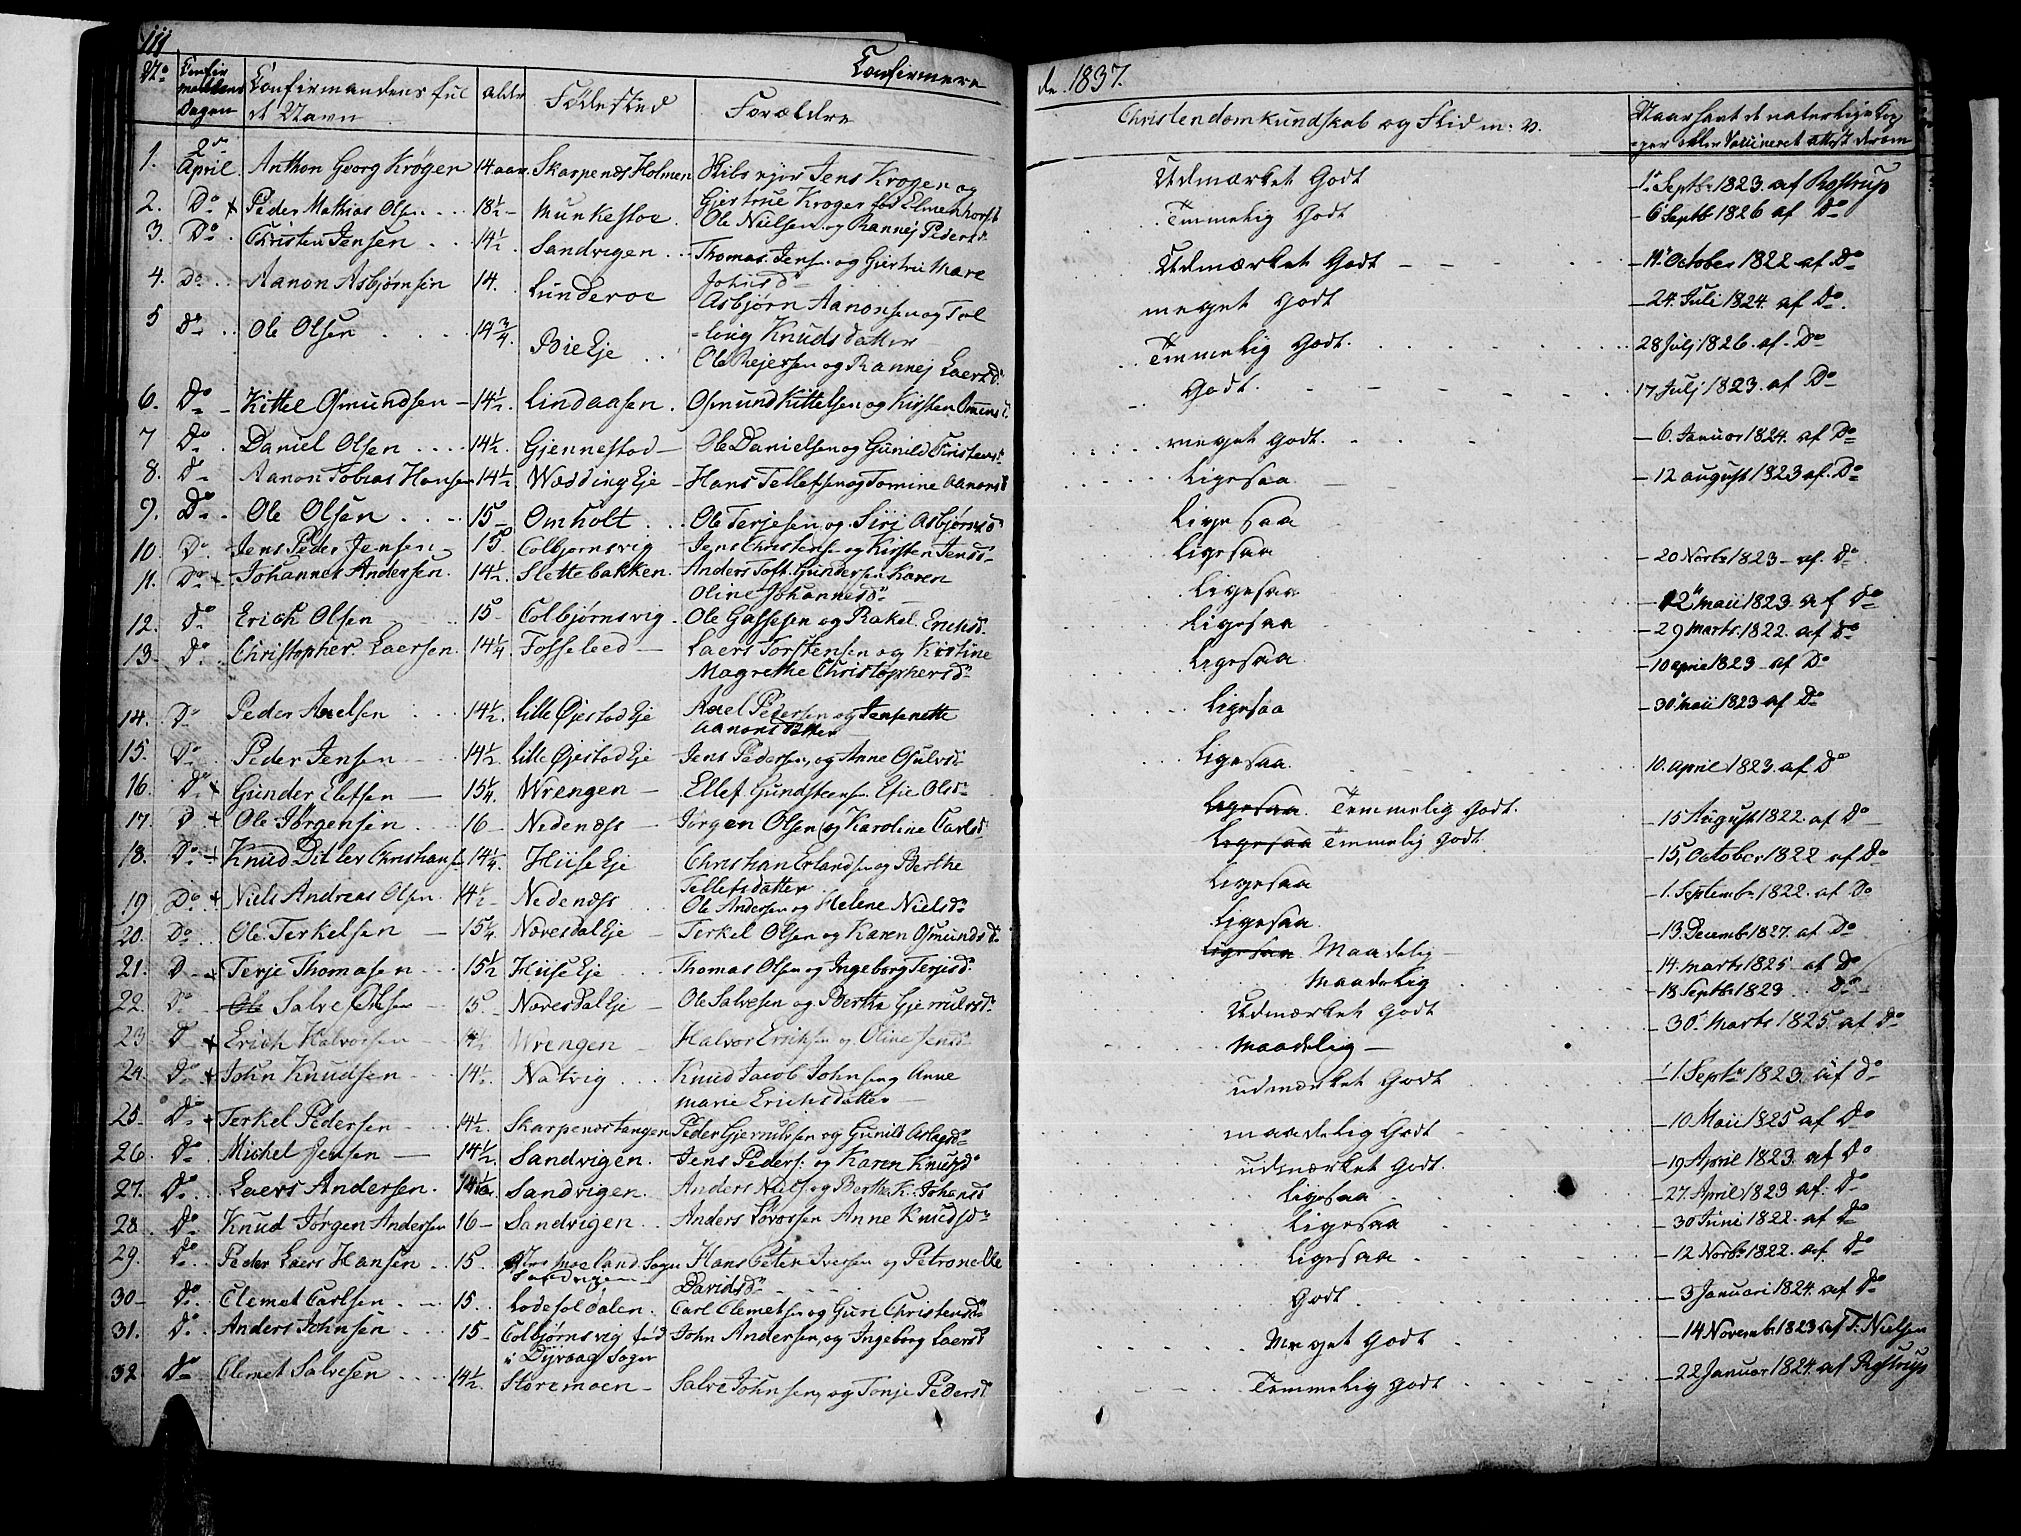 111
Confirmere
de 1837.
No Confirmations Dagen Confirmandens fulde Navn alder Fødested Forældre Christendomkundskab og Flid m: v. Naar havt de naturlige Kopper eller Vaccineret attest derom
1. 2den April Anthon Georg Krøger 14 aar Skarpenes Holmen Skibs Jens Krogen og Gjertrue Krøger fød Elmenhorst Udmærket Godt 1te Septbr 1823 af Rostrup
2. Do + Peder Mathias Olsen 18½ Munkestoe Ole Nielsen og Rannej Pedersd. Temmelig Godt 6 Septb 1826 af Do
3. Do Christen Jensen 14½ Sandvigen Thomas Jens. og Gjertru Mare Johnsdr Udmærket Godt 11 October 1822 af Do
4. Do Aanon Asbjørnsen 14. Lunderoe Asbjørn Aanonsen og Tolleug Knudsdatter meget Godt 24. Juli 1824. af Do
5 Do Ole Olsen 14¾ Bie Eje Ole Rejersen og Rannej Laersd: Temmelig Godt. 28 Julj 1826. af Do
6. Do Kittel Osmundsen 14½ Lindaasen Osmund Kittelsen og Kirsten Godt. 17 Julj 1823. af Do
7 Do Daniel Olsen 14½ Gjennestad Ole Danielsen og Gunild meget Godt. 6. Januar 1824. af Do
8. Do Aanon Tobias Hansen 14½ Wædding Eje Hans Tellefsen og Tomine Aanonsd Ligesaa 12 august 1823 af Do
9. Do Ole Olsen 15 Omholt Ole Terjesen og Siri Asbjørnsd Lige saa
10. Do Jens Peder Jensen 15 Colbjornsvig Jens Christens og Kirsten Jensd: Ligesaa 20 Novbr 1823 af Do
11. Do + Johannes Andersen 14½ Slettebakken Anders Toft. Gundersen Karen Oline Johannesdr Ligesaa 12 maii 1823 af Do
12. Do Erich Olsen 15 Colbjørnsvig Ole Gassesen og Rakel Erichsd. Ligesaa 29 marts 1822. af Do
13. Do Christopher Laersen 14¼ Fosseleed Laers Torstensen og Kistine Magrethe Christophersdr Ligesaa 10 april 1823 af Do
14. Do Peder Axelsen 14½ Lille Øjestad Eje Axel Pedersen og Jensenette Aanonsdatter Ligesaa 30 maii 1823 af Do
15. Do Peder Jensen 14½ Lille Øjestad Eje Jens Pedersen, og Anne Osulvsd Ligesaa. 10. april 1823. af Do
16. Do + Gunder Elefsen 15¼ Wrengen Ellef Gundersen Efie Olsdr Ligesaa Temmelig Godt.
17. D + Ole Jørgensen 16 Nedenæss Jørgen Olsen og Karoline Carlsd Ligesaa Temmelig Godt. 15 August 1822. af Do
18. Do + Knud Ditlev Christians 14¼ Hiise Eje Christian Erlandsen og Berthe Tellefsdatter Ligesaa 15, October 1822 af Do
19 Do + Niels Andreas Olsen 14½ Nedenæss Ole Andersen og Helene Nielsdr Ligesaa 1. Septembr 1822. af Do
20. Do Ole Terkelsen 15¼ Næresdal Eje Terkel Olsen og Karen Osmundsdr Ligesaa Maadelig 13. Decemb 1827. af Do
21. D + Terje Thomasen 15½ Hiise Eje Thomas Olsen og Ingeborg Terjesd. Maadelig 14. marts 1825 af Do
22. Do Ole Salve Olsen 15 Næresdal Eje Ole Salvesen og Berthe Gjermulsdr Udmærket Godt 18 Septb 1823 Do
23 D + Erich Halvorsen 14½ Wrengen Halvor Erichsen og Oline Jensdr Maadelig 30 marts 1825 af Do
24. Do + John Knudsen 14½ Natvig Knud Jacob Johnsen og Anne marie Erichsdatter udmærket Godt 11. Septbr 1823. af Do
25. Do + Terkel Pedersen 14½ Skarpenestangen Peder Gjermulsen og Gunild Aslagsdr maadelig Godt 10 Maii 1825 af Do
26. Do Michel Jensen 14½ Sandvigen Jens Peders: og Karen Knudsdr udmærket Godt. 19 April 1823. af Do
27. Do Laers Andersen 14½ Sandvigen Anders Niels. og Berthe K. Johansd Ligesaa 27. April 1823 af Do
28. Do Knud Jørgen Andersen 16 Sandvigen Anders Sørossen Anne Knudsdr Ligesaa 30 Juni 1822. af Do
29. Do Peder Laers Hansen 15. moeland Sogn Sandvigen Hans Peter Iversen og Petronelle Davidsdr Ligesaa 12 Novbr 1822. af Do
30 Do Clemet Carlsen 15. Lodesoldalen Carl Clemetsen og Guri Christensdr Godt 3 Januari 1824. af Do
31. Do Anders Johnsen 15 Colbjørnsvig fød i Dijvaag Sogn John Andersen, og Ingeborg Laersd Meget Godt 14 Novemb 1823 af T: Nielsen
32 Do Clemet Salvesen 14½ Storemoen Salve Johnsen, og Tonje Pedersd Temmelig Godt 22 Januar 1824. af Rostrup